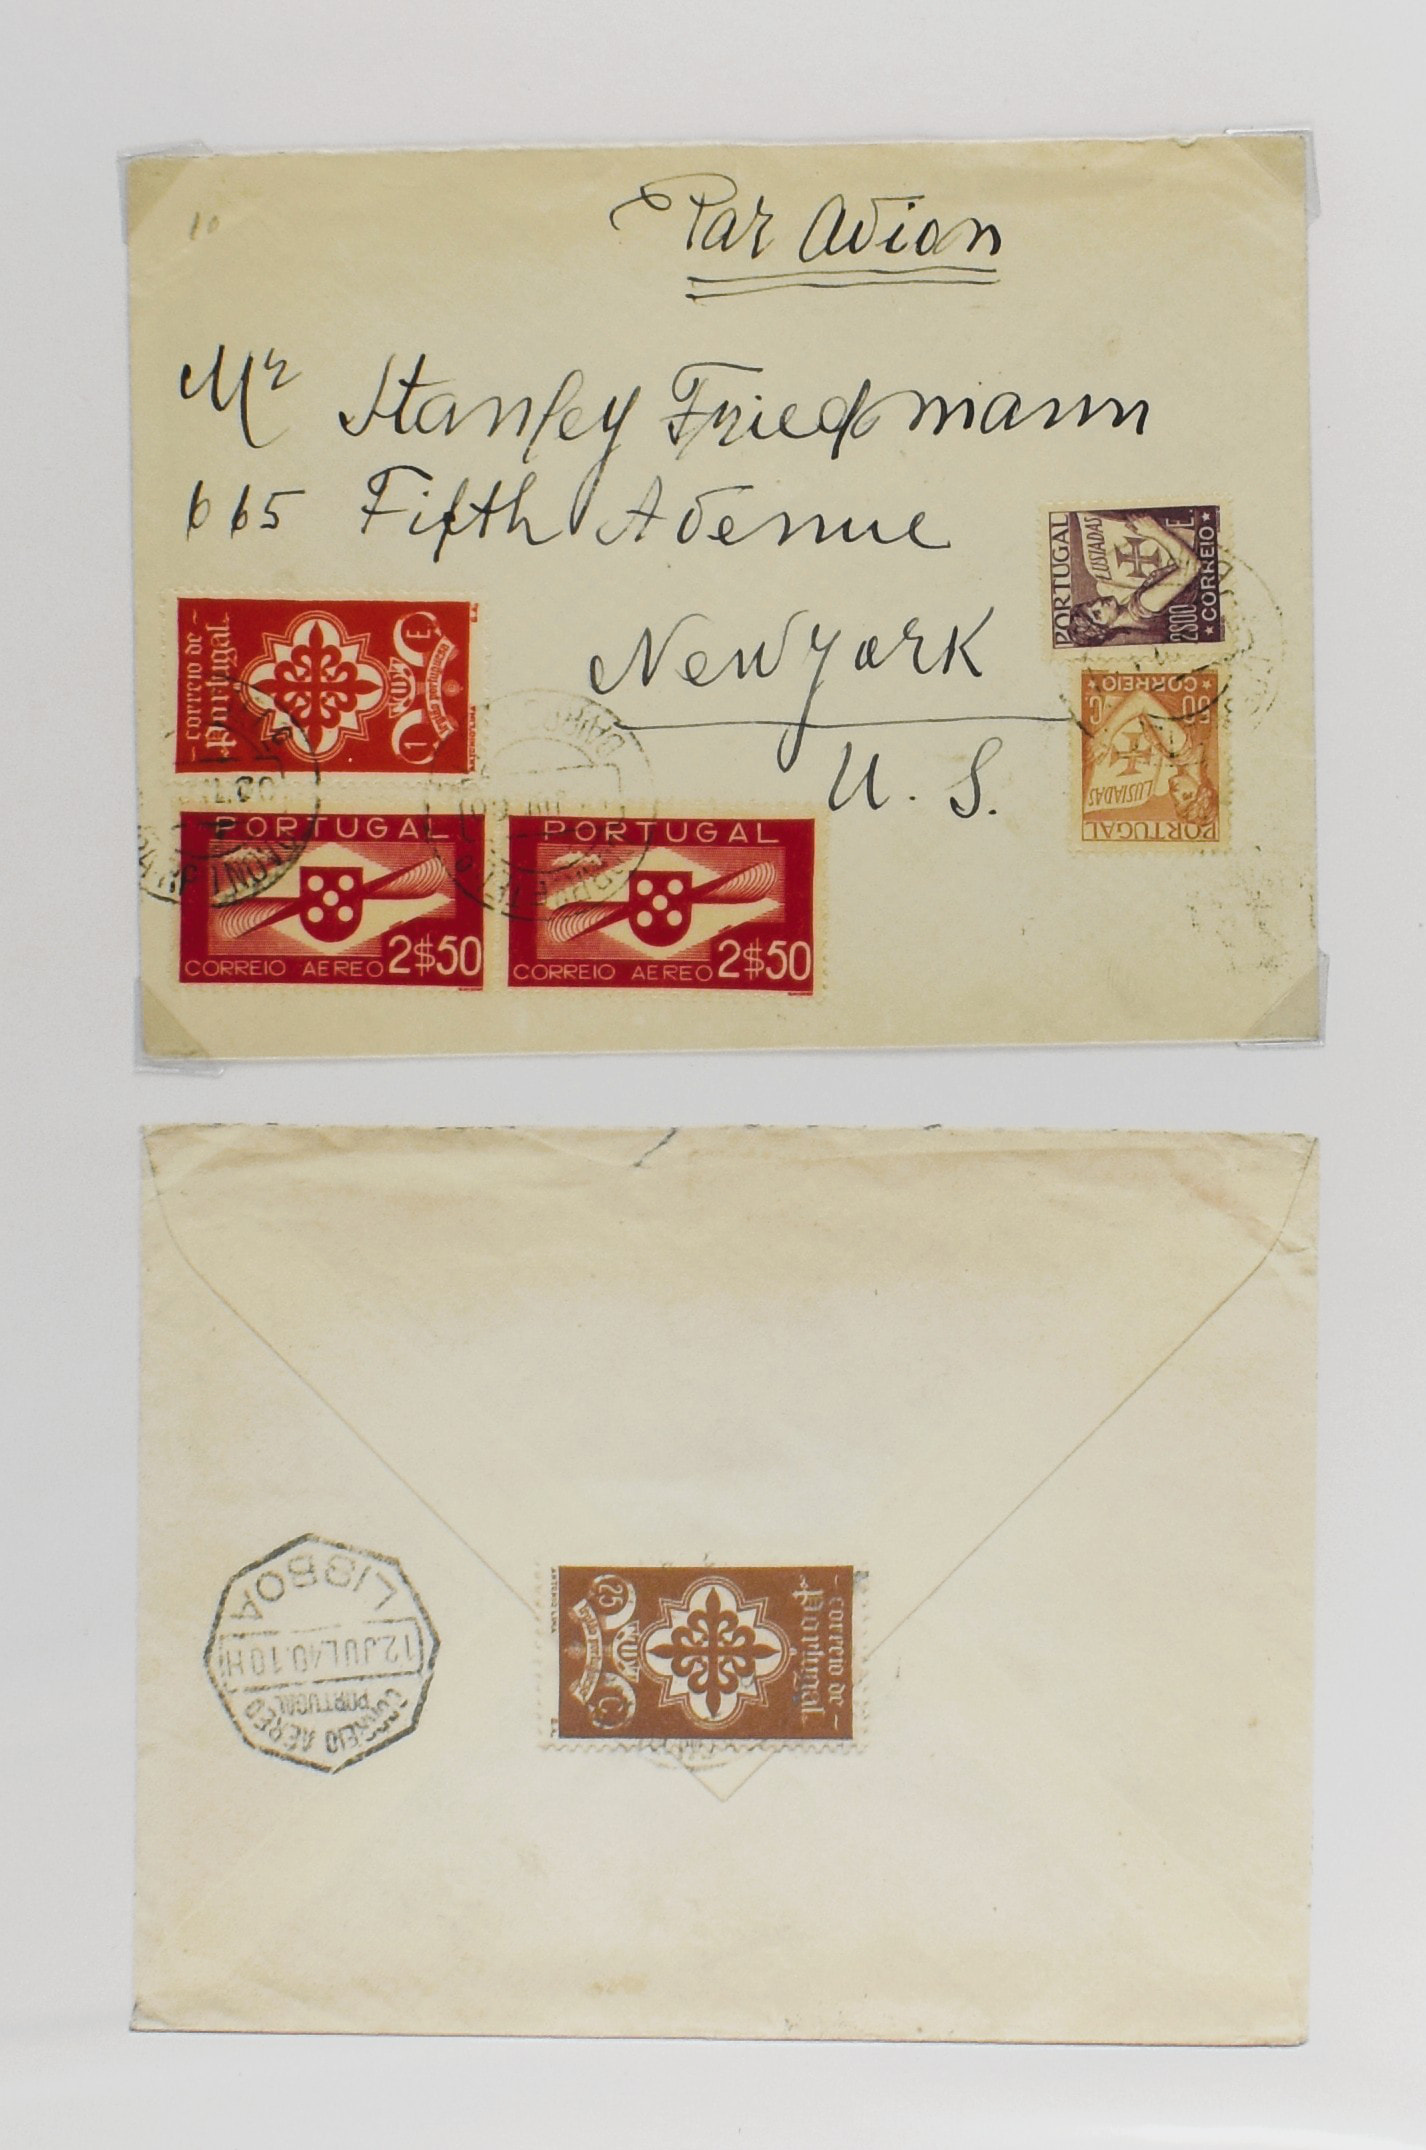 10
Par Avion
Mr Stanley Friedmann
665 Fifth Avenue
New york
U. S.
correio de
Portugal
1 E.
PORTUGAL
LUSIADAS
2$00 E.
CORREIO
PORTUGAL
LUSIADAS
80 C.
CORREIO
PORTUGAL
CORREIO AEREO 2$50
PORTUGAL
CORREIO AEREO 2$50
LISBOA
12.JUL.40.10H
CORREIO AEREO
PORTUGAL
correio de
Portugal
25 C.
legião portuguesa
ARTERIO LIMA